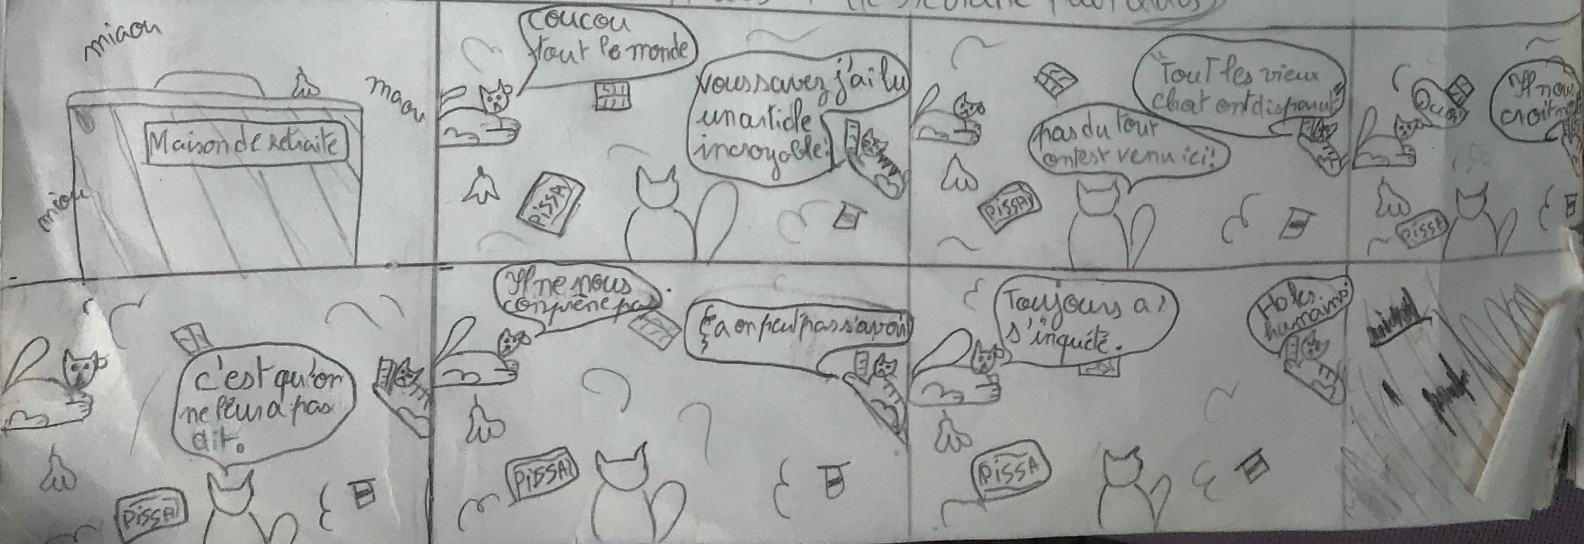 miaou
maou
Maison de retraite
miaou
coucou
tout le monde
Vous savez j'ai lu
un article
incroyable!
PISSA
Tout les vieux
chat ont disparut!
pas du tout
on est venu ici!
PISSA
Ouai
Il nou
croit
PISSA
c'est qu'on
ne leur a pas
dit.
PISSA
Il ne nous
comprène pas.
Ça on peut pas savoir
PISSA
Toujours a
s'inquété.
Ho les
humains!
PISSA